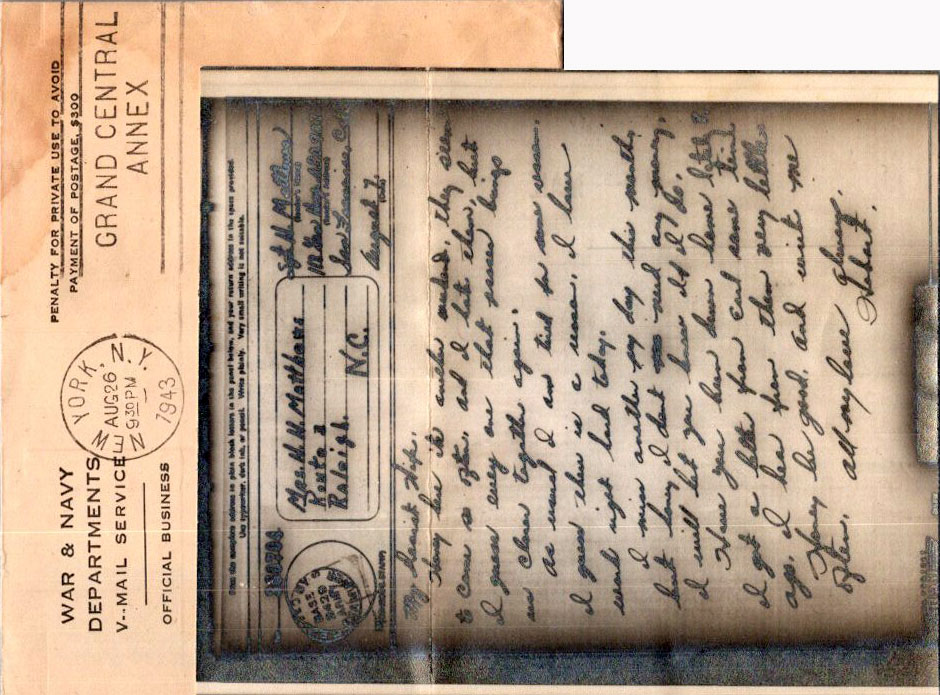 WAR & NAVY
DEPARTMENTS
V--MAIL SERVICE
OFFICIAL BUSINESS
NEW YORK, N.Y.
AUG 26
9 30 PM
1943
PENALTY FOR PRIVATE USE TO AVOID
PAYMENT OF POSTAGE, $300
GRAND CENTRAL
ANNEX
Print the complete address in plain block letters in the panel below, and your return address in the space provided.
Use typewriter, dark ink, or pencil. Write plainly. Very small writing is not suitable.
Mrs. H. H. Matthews
Route
Raleigh. N.C.
Sgt H H Matthews
San Francisco, Calif
August 7,
My Sweet Wife.
Honey here it another weekend, they seem
to come so often. and I let them, but
I guess every one that passes brings
us closer together again.
As usual I am tired so me soon.
I guess there is a reason. I have
went right hard today.
I miss another pay day this month,
but honey I dont need any money,
I will let you know it I do.
Have you been down home lately?
I got a letter from Carl some time
ago. I hear from them very little
Honey be good. and write me
often. all my love always
Hubert.